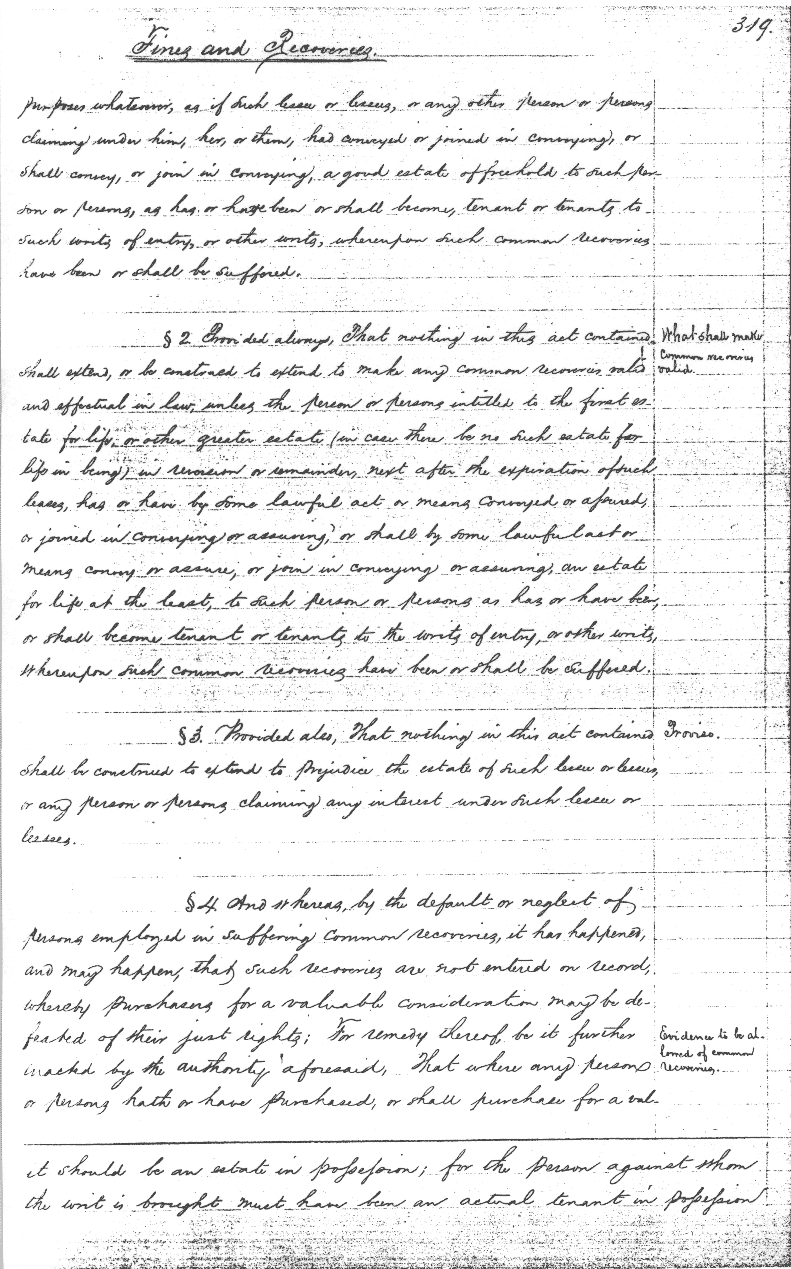 319.
Fines and Recoveries.
purposes whatsoever, as if such lessee or lessees, or any other person or persons
claiming under him, her, or them, had conveyed or joined in conveying, or
shall convey, or join in conveying, a good estate of freehold to such per-
son or persons, as has or have been or shall become, tenant or tenants to
such writs of entry, or other writs, whereupon such common recoveries
have been or shall be suffered.
§ 2 Provided always, That nothing in this act contained
What shall make
common recoveries
valid.
shall extend, or be construed to extend to make any common recoveries valid
and effectual in law, unless the person or persons intitled to the first es-
tate for life, or other greater estate (in case there be no such estate for
life in being) in reversion or remainder, next after the expiration of such
leases, has or have by some lawful act or means conveyed or assured,
or joined in conveying or assuring, or shall by some lawful act or
means convey or assure, or join in conveying or assuring, an estate
for life at the least, to such person or persons as has or have been,
or shall become tenant or tenants to the writs of entry, or other writs,
whereupon such common recoveries have been or shall be suffered.
§ 3. Provided also, That nothing in this act contained
Proviso.
shall be construed to extend to prejudice the estate of such lessee or lessees,
or any person or persons claiming any interest under such lessee or
lessees.
§ 4. And whereas, by the default or neglect of
persons employed in suffering common recoveries, it has happened,
and may happen, that such recoveries are not entered on record,
whereby purchasers for a valuable consideration may be de-
feated of their just rights; For remedy thereof, be it further
Evidence to be al-
lowed of common
recoveries.
enacted by the authority aforesaid, That where any person
or persons hath or have purchased, or shall purchase for a val-
it should be an estate in possession; for the person against whom
the writ is brought must have been an actual tenant in possession